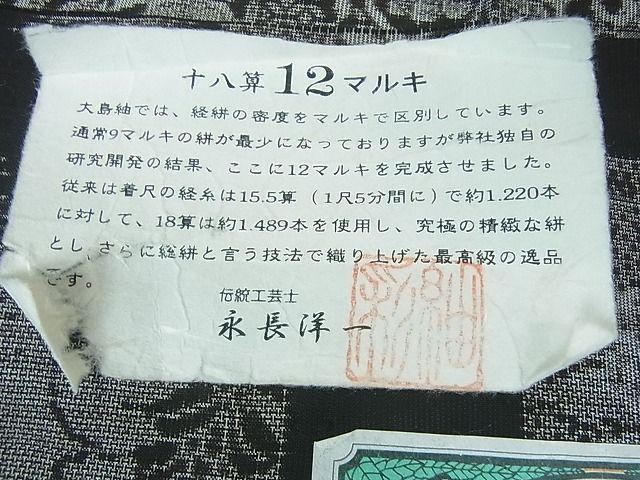 十八算 12マルキ
大島紬では、経絣の密度をマルキで区別しています。
通常9マルキの絣が最少になっておりますが弊社独自の
研究開発の結果、ここに12マルキを完成させました。
従来は着尺の経糸は15.5算（1尺5分間に）で約1.220本
に対して、18算は約1.489本を使用し、究極の精緻な絣
とし、さらに総絣と言う技法で織り上げた最高級の逸品
です。
伝統工芸士
永長洋一